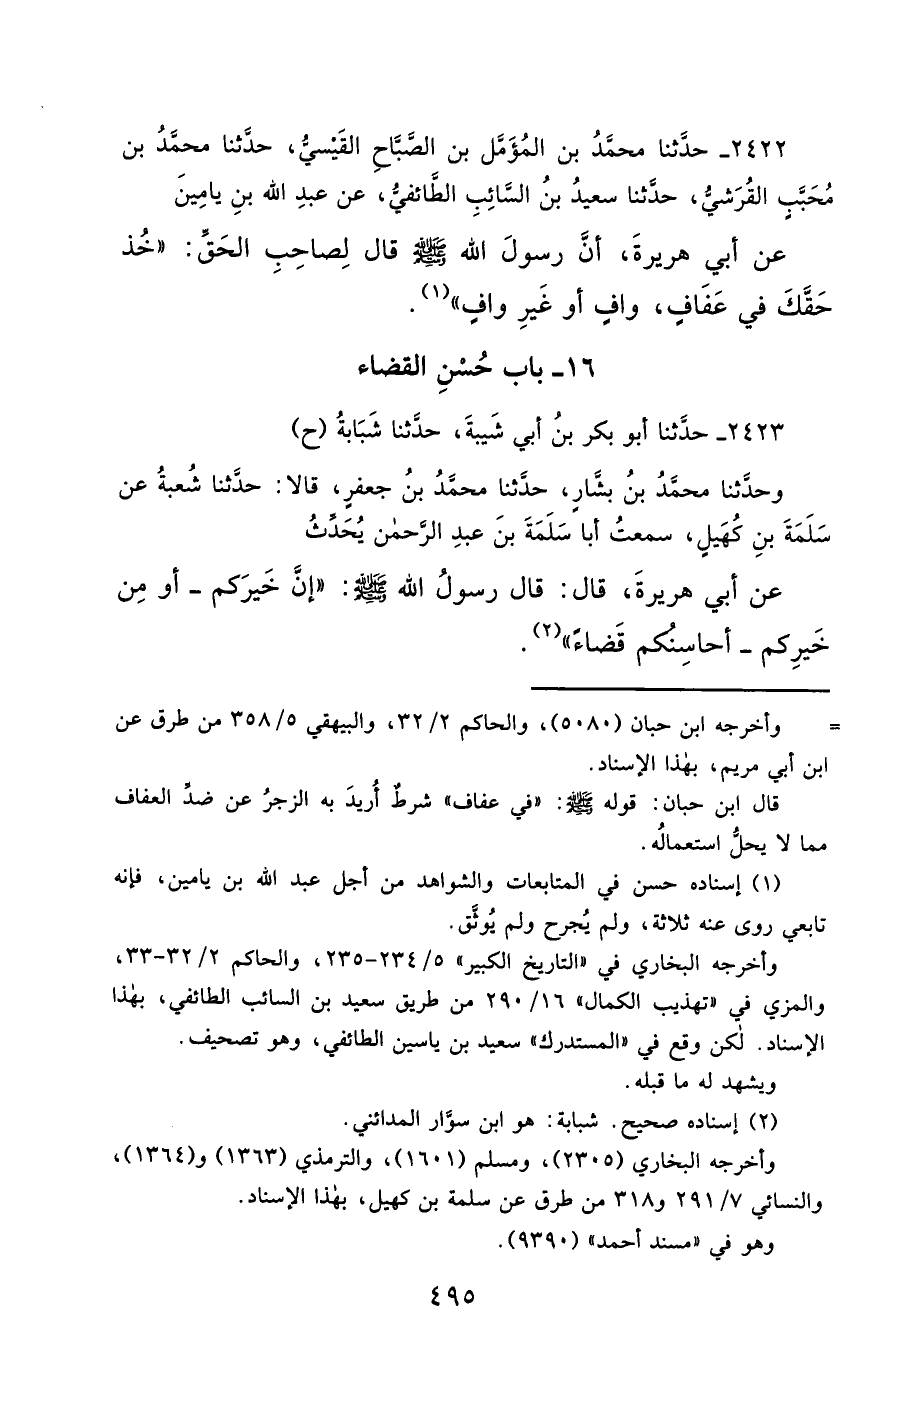 ٢٤٢٢ـ حدَّثنا محمَّدُ بن المُؤَمَّل بن الصَّبَّاحِ القَيْسيُّ، حدَّثنا محمَّدُ بن
مُحَبَّبٍ القُرَشيُّ، حدَّثنا سعيدُ بنُ السَّائِبِ الطَّائفيُّ، عن عبدِ الله بنِ يامِينَ
عن أبي هريرةَ، أنَّ رسولَ الله ﷺ قال لِصاحِبِ الحَقِّ: «خُذ
حَقَّكَ في عَفَافٍ، وافٍ أو غَيرِ وافٍ»(١).
١٦ـ باب حُسْنِ القضاء
٢٤٢٣ـ حدَّثنا أبو بكر بنُ أبي شَيبةَ، حدَّثنا شَبَابةُ (ح)
وحدَّثنا محمَّدُ بنُ بشَّارٍ، حدَّثنا محمَّدُ بنُ جعفرٍ، قالا: حدَّثنا شُعبةُ عن
سَلَمَةَ بنِ كُهَيلٍ، سمعتُ أبا سَلَمَةَ بنَ عبدِ الرَّحمٰن يُحَدِّثُ
عن أبي هريرةَ، قال: قال رسولُ الله ﷺ: «إنَّ خَيرَكم ـ أو مِن
خَيرِكم ـ أحاسِنُكم قَضاءً»(٢).
= وأخرجه ابن حبان (٥٠٨٠)، والحاكم ٢/ ٣٢، والبيهقي ٥/ ٣٥٨ من طرق عن
ابن أبي مريم، بهٰذا الإسناد.
قال ابن حبان: قوله ﷺ: «في عفاف» شرطٌ أُريدَ به الزجرُ عن ضدِّ العفاف
مما لا يحلُّ استعمالُه.
(١) إسناده حسن في المتابعات والشواهد من أجل عبد الله بن يامين، فإنه
تابعي روى عنه ثلاثة، ولم يُجرح ولم يُوثَّق.
وأخرجه البخاري في «التاريخ الكبير» ٥/ ٢٣٤-٢٣٥، والحاكم ٢/ ٣٢-٣٣،
والمزي في «تهذيب الكمال» ١٦/ ٢٩٠ من طريق سعيد بن السائب الطائفي، بهٰذا
الإسناد. لٰكن وقع في «المستدرك» سعيد بن ياسين الطائفي، وهو تصحيف.
ويشهد له ما قبله.
(٢) إسناده صحيح. شبابة: هو ابن سوَّار المدائني.
وأخرجه البخاري (٢٣٠٥)، ومسلم (١٦٠١)، والترمذي (١٣٦٣) و(١٣٦٤)،
والنسائي ٧/ ٢٩١ و٣١٨ من طرق عن سلمة بن كهيل، بهٰذا الإسناد.
وهو في «مسند أحمد» (٩٣٩٠).
٤٩٥